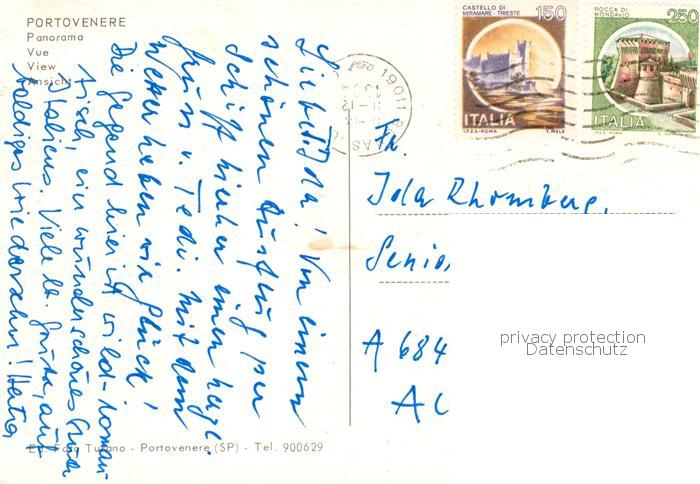 PORTOVENERE
Panorama
Vue
View
Ansicht
Liebe Ida! Von einem
schönen Ausflug per
Schiff hieher einen herzl.
Gruss v. Tedi. Mit dem
Wetter haben wir Glück!
Die Gegend hier ist wild-roman-
tisch, ein wunderschönes
Italiens. Viele lb. Grüsse, auf
baldiges Wiedersehn! Herta
Ed. Foto Turano - Portovenere (SP) - Tel. 900629
19011
CASTELLO DI
MIRAMARE - TRIESTE
150
ITALIA
I.P.Z.S.-ROMA
T. MELE
ROCCA DI
MONDAVIO
250
ITALIA
I.P.Z.S. ROMA
Fr.
Ida Rhomberg,
Senio
A 684
privacy protection
Datenschutz